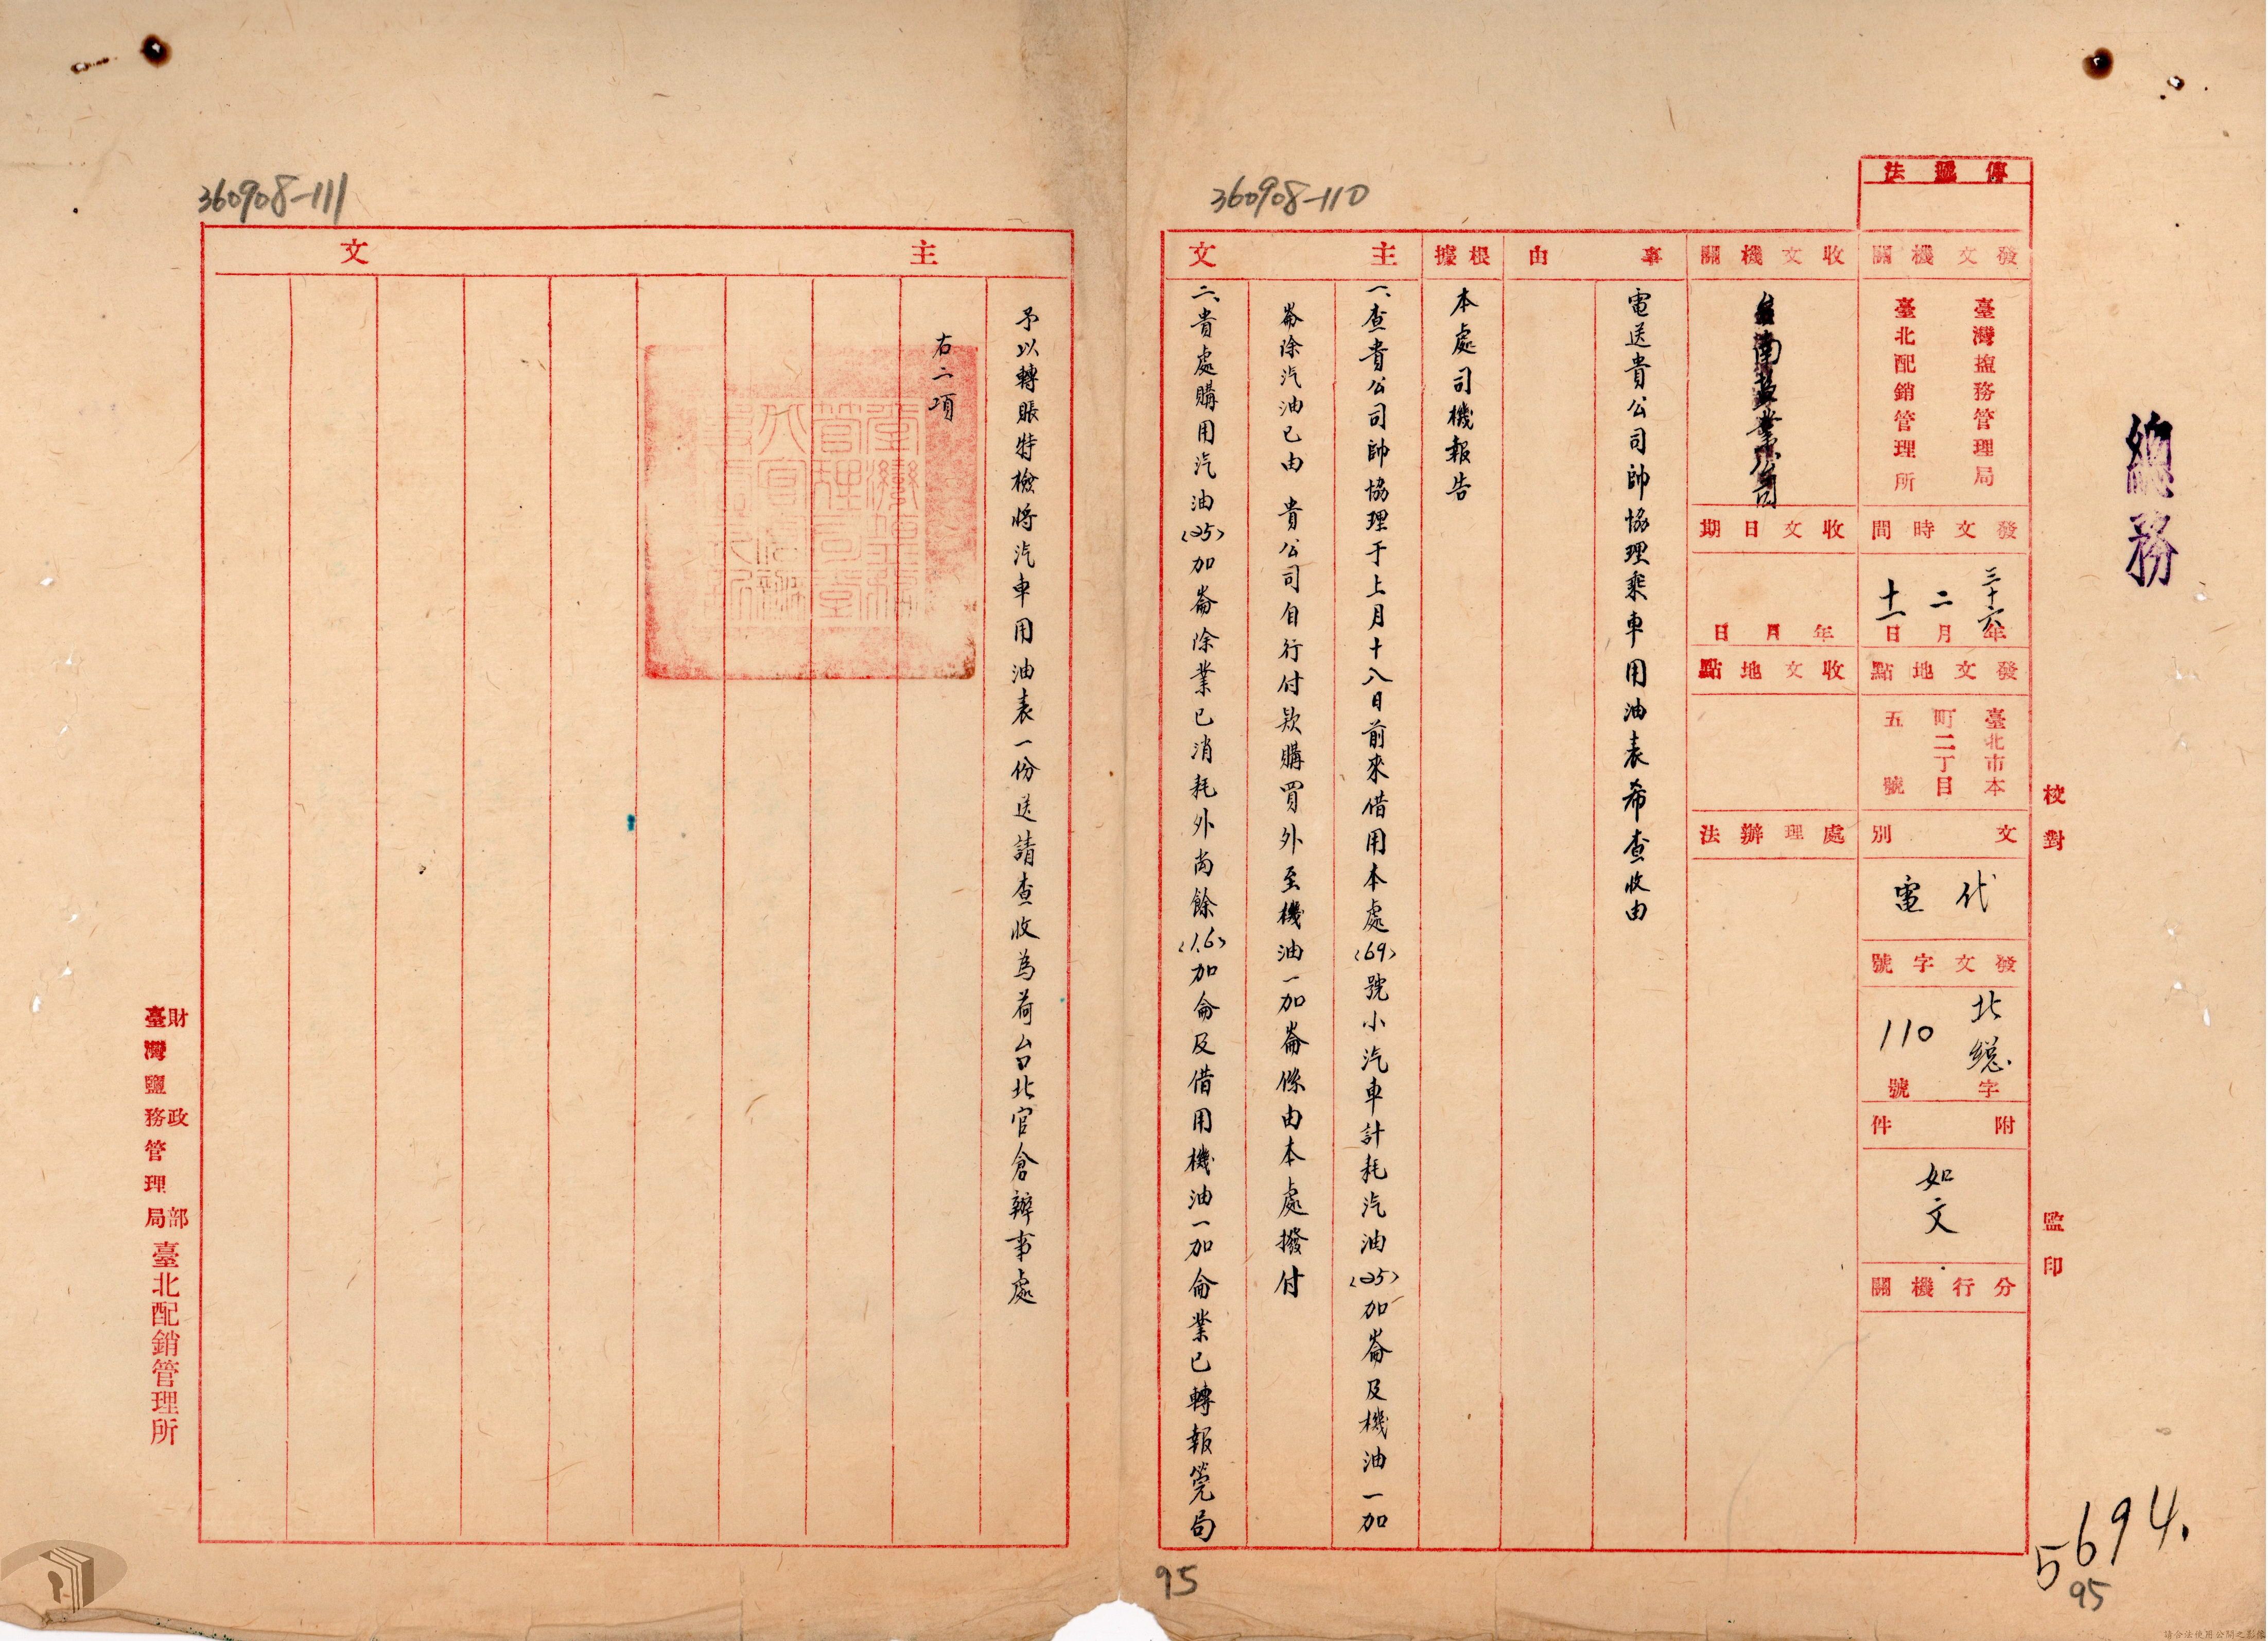 總務
傳遞法
發文機關
臺灣塩務管理局
臺北配銷管理所
發文時間
三十六年
二月
十一日
發文地點
臺北市本
町二丁目
五號
文別
代電
發文字號
北總字
110號
附件
如文
分行機關
收文機關
收文日期
年月日
收文地點
處理辦法
事由
電送貴公司帥協理乘車用油表希查收由
根據
本處司機報告
主文
一、查貴公司帥協理于上月十八日前來借用本處(69)號小汽車計耗汽油(25)加崙及機油一加
崙除汽油已由 貴公司自行付款購買外至機油一加崙係由本處撥付
二、貴處購用汽油(25)加崙除業已消耗外尚餘(1.6)加侖及借用機油一加侖業已轉報筦局
校對
監印
5694.
95
95
360908-110
360908-111
主文
予以轉賬特檢將汽車用油表一份送請查收為荷台北官倉辦事處
右二項
財政部
臺灣鹽務管理局
臺北配銷管理所